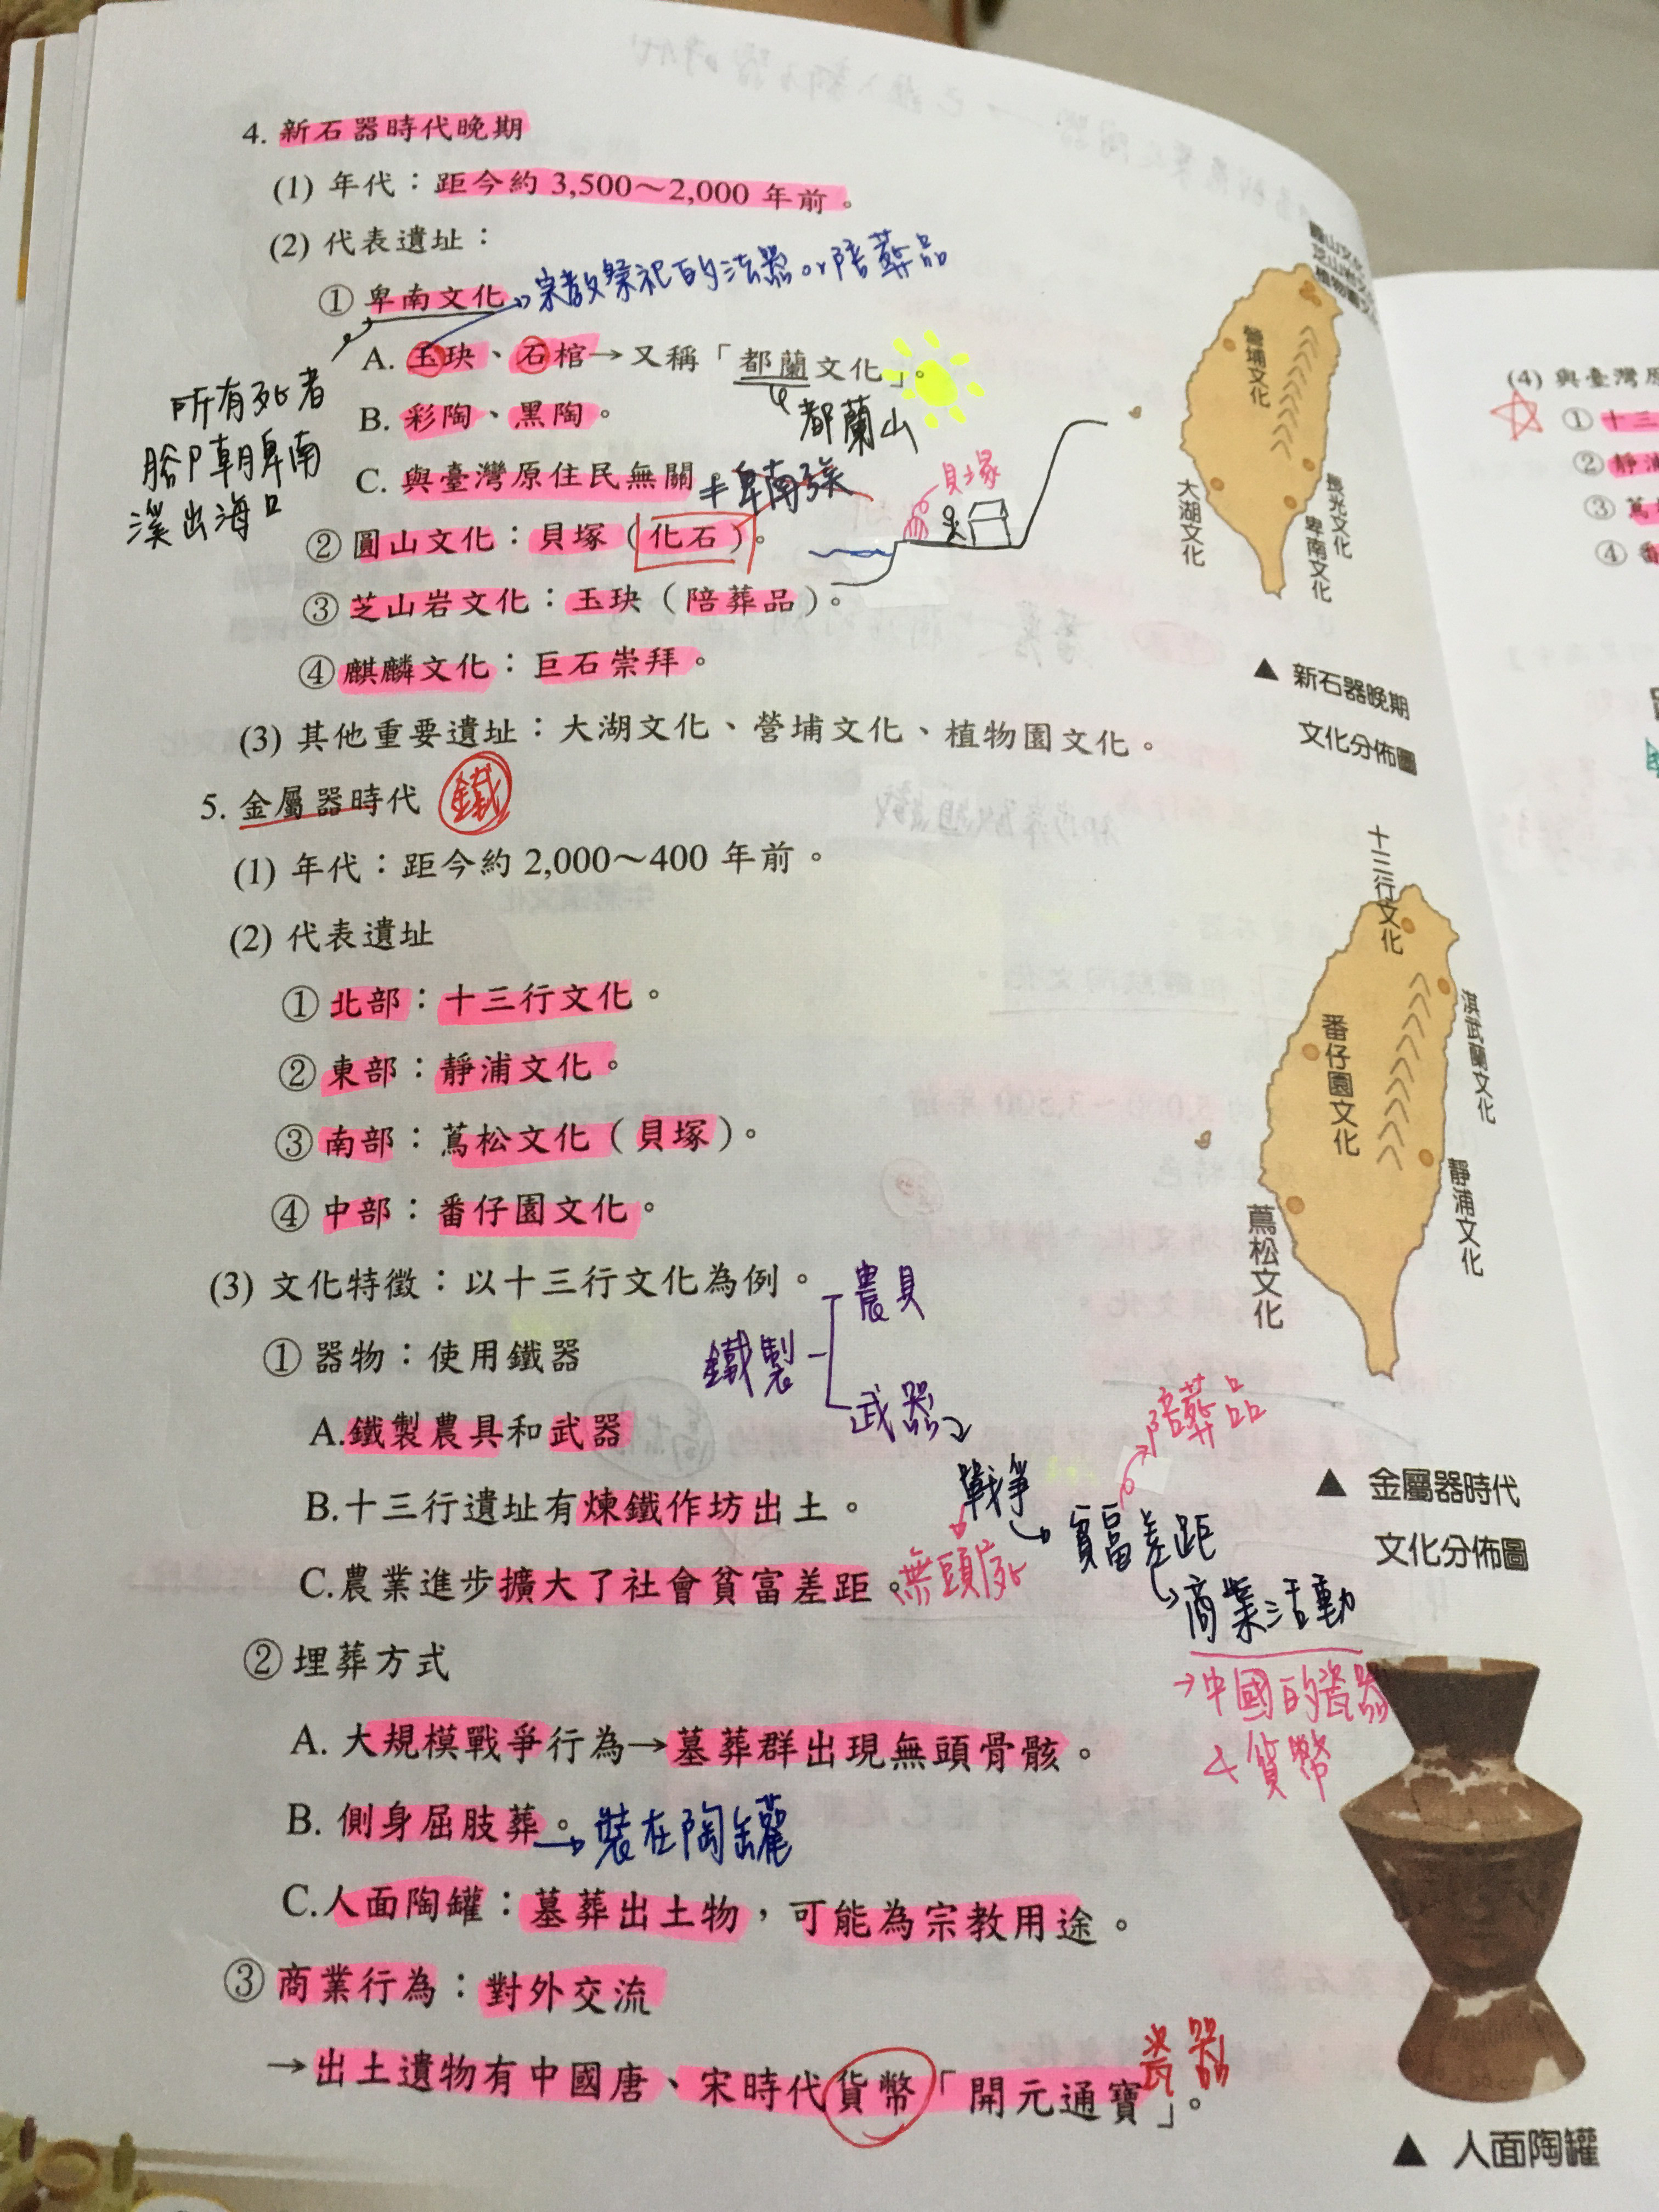 4. 新石器時代晚期
(1) 年代：距今約 3,500～2,000 年前。
(2) 代表遺址：
① 卑南文化
宗教祭祀的法器 or 陪葬品
A. 玉玦、石棺→又稱「都蘭文化」。
都蘭山
所有死者
腳朝卑南
溪出海口
B. 彩陶、黑陶。
C. 與臺灣原住民無關
≠卑南族
② 圓山文化：貝塚（化石）。
貝塚
③ 芝山岩文化：玉玦（陪葬品）。
④ 麒麟文化：巨石崇拜。
(3) 其他重要遺址：大湖文化、營埔文化、植物園文化。
營埔文化
大湖文化
長光文化
卑南文化
▲ 新石器晚期
文化分佈圖
5. 金屬器時代
鐵
(1) 年代：距今約 2,000～400 年前。
(2) 代表遺址
① 北部：十三行文化。
② 東部：靜浦文化。
③ 南部：蔦松文化（貝塚）。
④ 中部：番仔園文化。
十三行文化
淇武蘭文化
番仔園文化
靜浦文化
蔦松文化
▲ 金屬器時代
文化分佈圖
(3) 文化特徵：以十三行文化為例。
① 器物：使用鐵器
鐵製
農具
武器
A.鐵製農具和武器
B.十三行遺址有煉鐵作坊出土。
C.農業進步擴大了社會貧富差距。
戰爭
無頭屍
貧富差距
陪葬品
商業活動
→中國的瓷器
+貨幣
② 埋葬方式
A. 大規模戰爭行為→墓葬群出現無頭骨骸。
B. 側身屈肢葬。
→裝在陶罐
C.人面陶罐：墓葬出土物，可能為宗教用途。
③ 商業行為：對外交流
→出土遺物有中國唐、宋時代貨幣「開元通寶」。
瓷器
▲ 人面陶罐
(4) 與臺灣原
① 十三
② 靜浦
③ 蔦
④ 番